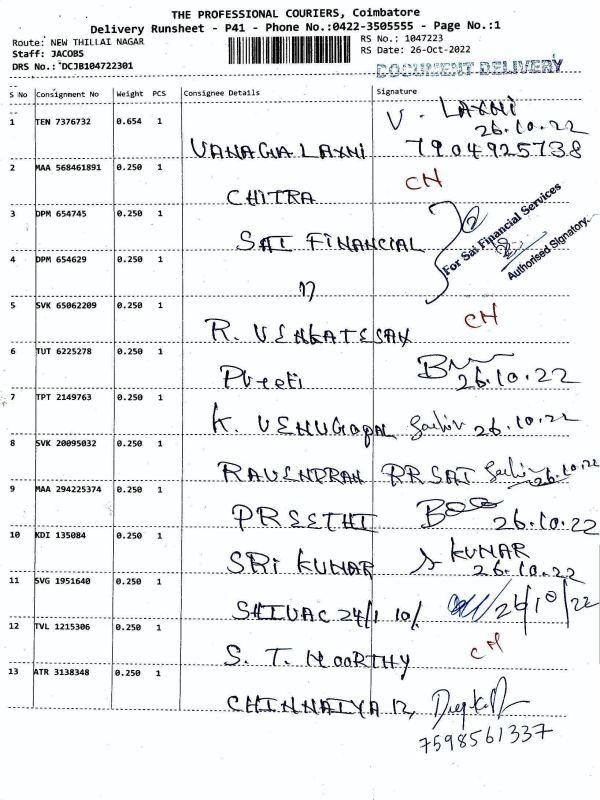 THE PROFESSIONAL COURIERS, Coimbatore
Delivery Runsheet - P41 - Phone No.:0422-3505555 - Page No.:1
Route: NEW THILLAI NAGAR
RS No.: 1047223
Staff: JACOBS
RS Date: 26-Oct-2022
DRS No.: DCJB104722301
DOCUMENT DELIVERY
S No Consignment No Weight PCS Consignee Details Signature
1 TEN 7376732 0.654 1 V. LAXMI
26.10.22
VANAGIA LAXMI 7904925738
2 MAA 568461891 0.250 1 CH
CHITRA
3 DPM 654745 0.250 1
SAI FINANCIAL
For Sai Financial Services
Authorised Signatory.
4 DPM 654629 0.250 1
17
5 SVK 65062209 0.250 1 CH
R. VENKATESAN
6 TUT 6225278 0.250 1
Preeti 26.10.22
7 TPT 2149763 0.250 1
K. VENUGOPAL 26.10.22
8 SVK 20095032 0.250 1
RAVENDRAN RR SAT 26.10.22
9 MAA 294225374 0.250 1
PREETHI 26.10.22
10 KDI 135084 0.250 1
SRI KUMAR S KUMAR
26.10.22
11 SVG 1951640 0.250 1
SHIVAC 24/1 10/ 26/10/22
12 TVL 1215306 0.250 1 CH
S. T. MOORTHY
13 ATR 3138348 0.250 1
CHINNAIYA
7598561337